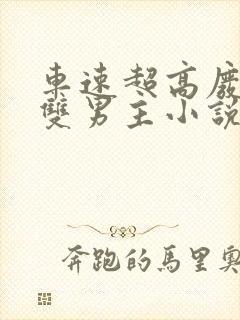 車速超高廢
雙男主小說
奔跑的馬里奧